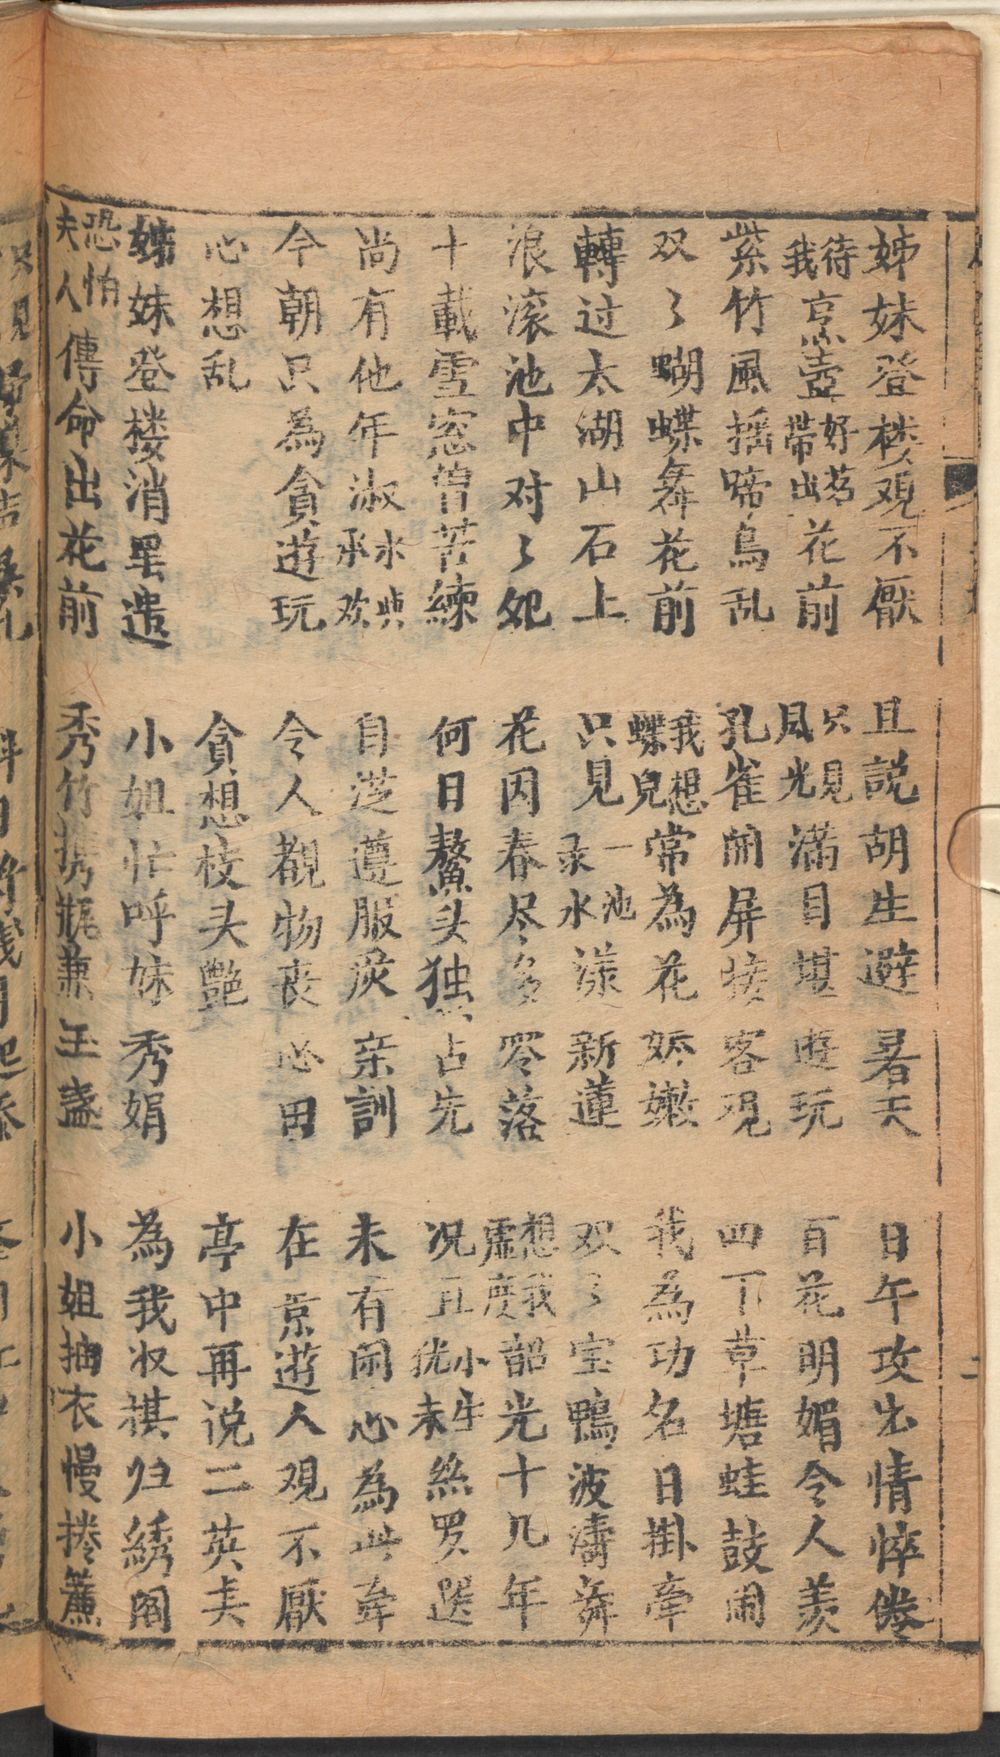 姊妹登楼观不厭 且説胡生避暑天 日午攻出情悴倦
待我烹壺好茗帶出花前 只見風光满目堪遊玩 百花明媚令人羡
紫竹風摇啼鳥乱 孔雀闹屏搓客观 四下草塘蛙鼓闹
双々蝴蝶舞花前 我想蝶兒常為花娇嫩 我為功名日掛牵
轉过太湖山石上 只見一池录水漾新蓮 双々宝鴨波濤舞
浪滚池中对々 花因春尽多零落 想我虚度韶光十几年
十載雪窓曾苦練 何日鰲头独占先 况且小生优未絲罗選
尚有他年淑水與承欢 自芝遵服戾亲訓 未有闹心為此牵
今朝只為貪遊玩 令人覩物丧心田 在京遊人观不厭
心想乱 貪想枝头艶 亭中再说二英夫
姊妹登楼消罢遣 小姐忙呼妹秀娟 為我收棋归綉阁
恐怕夫人傳命出花前 秀竹携瓶兼玉盏 小姐抽衣慢捲簾